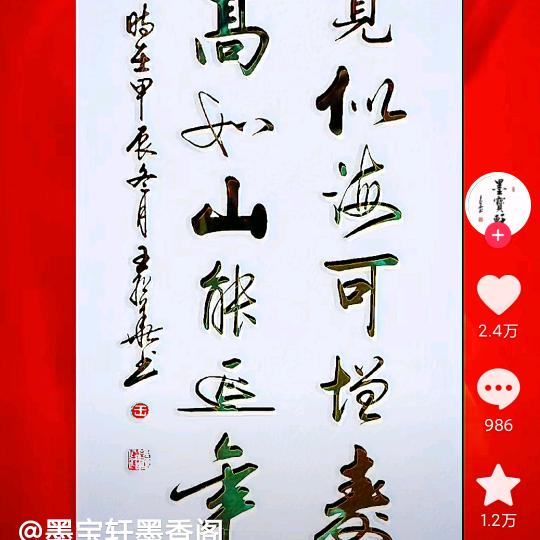 見似海可增壽
高如山能延年
時在甲辰冬月
書
墨寶軒
2.4万
986
1.2万
@墨宝轩墨香阁